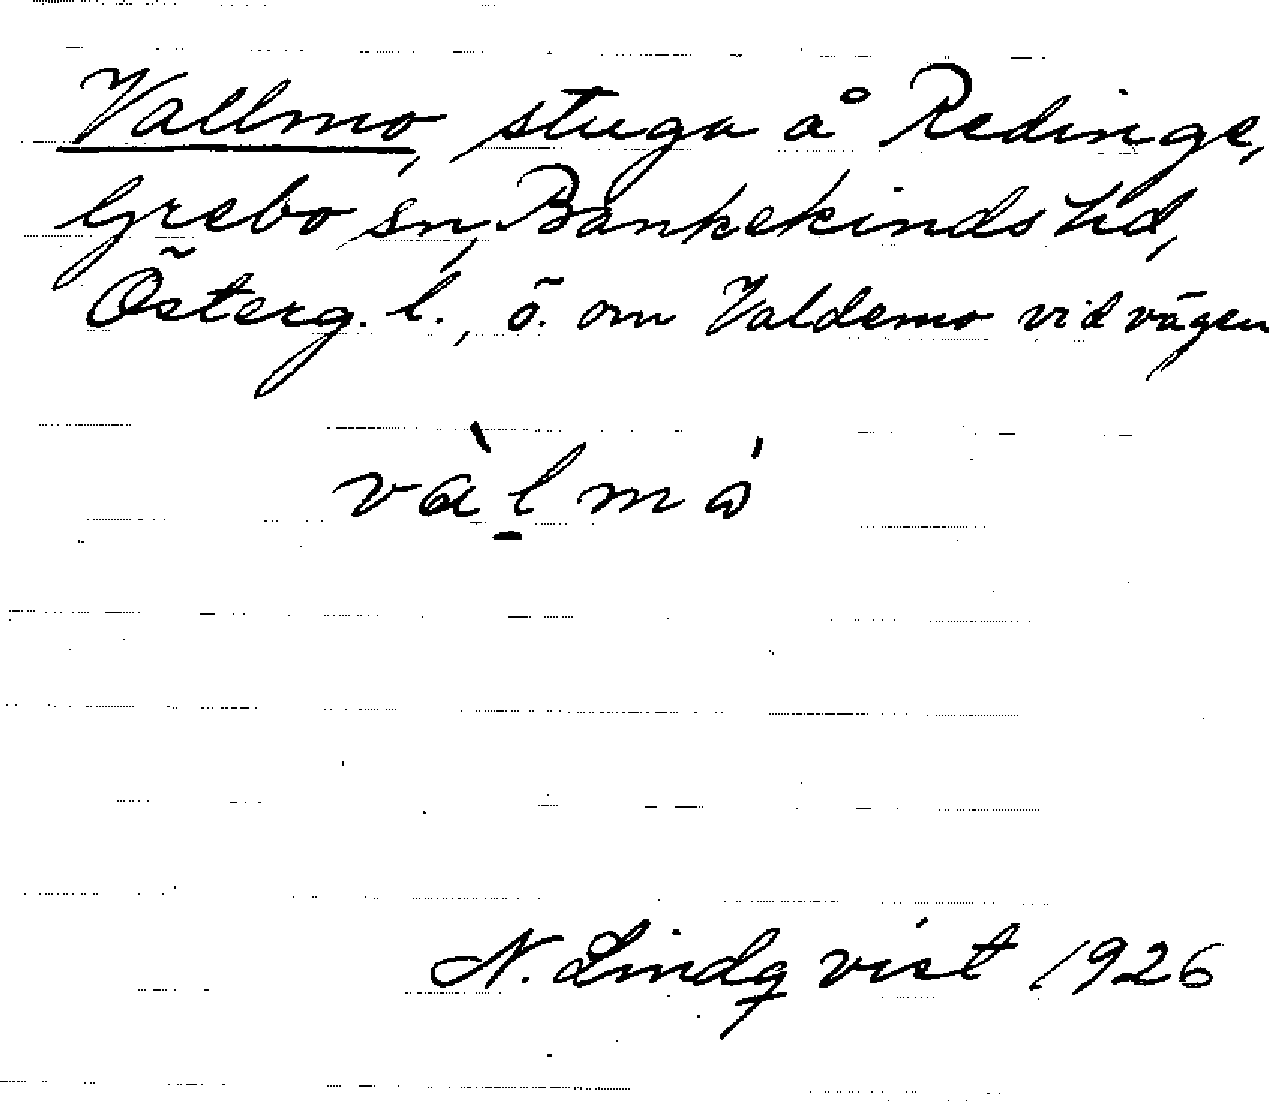 Vallmo, stuga å Redinge,
Grebo sn, Bankekinds hd,
Österg. l., ö. om Valdemo vid vägen
và̀ḻmó
N. Lindqvist 1926